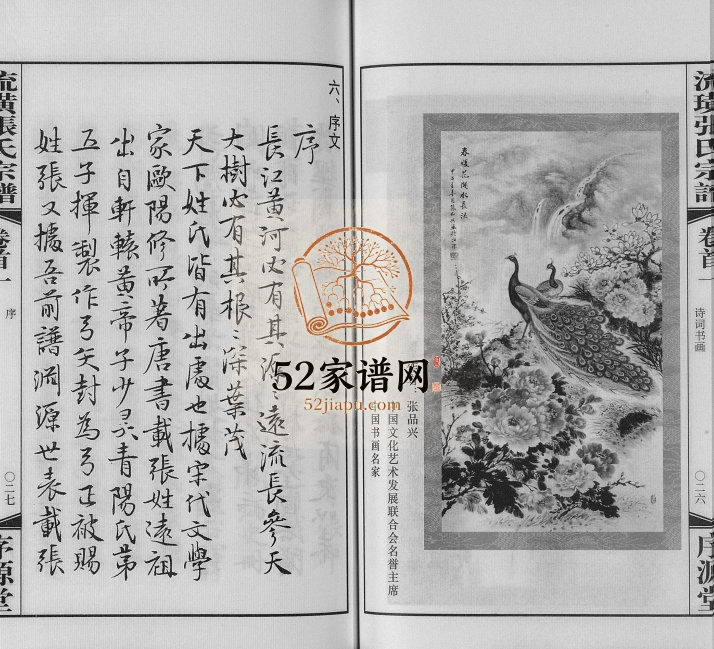 流璜張氏宗譜
卷首一
诗词书画
〇二六
序源堂
春暖花開水長流
张品兴
国文化艺术发展联合会名誉主席
国书画名家
六、序文
序
長江黄河必有其源〻遠流長參天
大樹必有其根〻深葉茂
天下姓氏皆有出處也據宋代文學
家歐陽修所著唐書載張姓遠祖
出自軒轅黄帝子少昊青陽氏第
五子揮製作弓矢封為弓正被賜
姓張又據吾前譜淵源世表載張
流璜張氏宗譜
卷首一
序
〇二七
序源堂
52家谱网
52jiapu.com